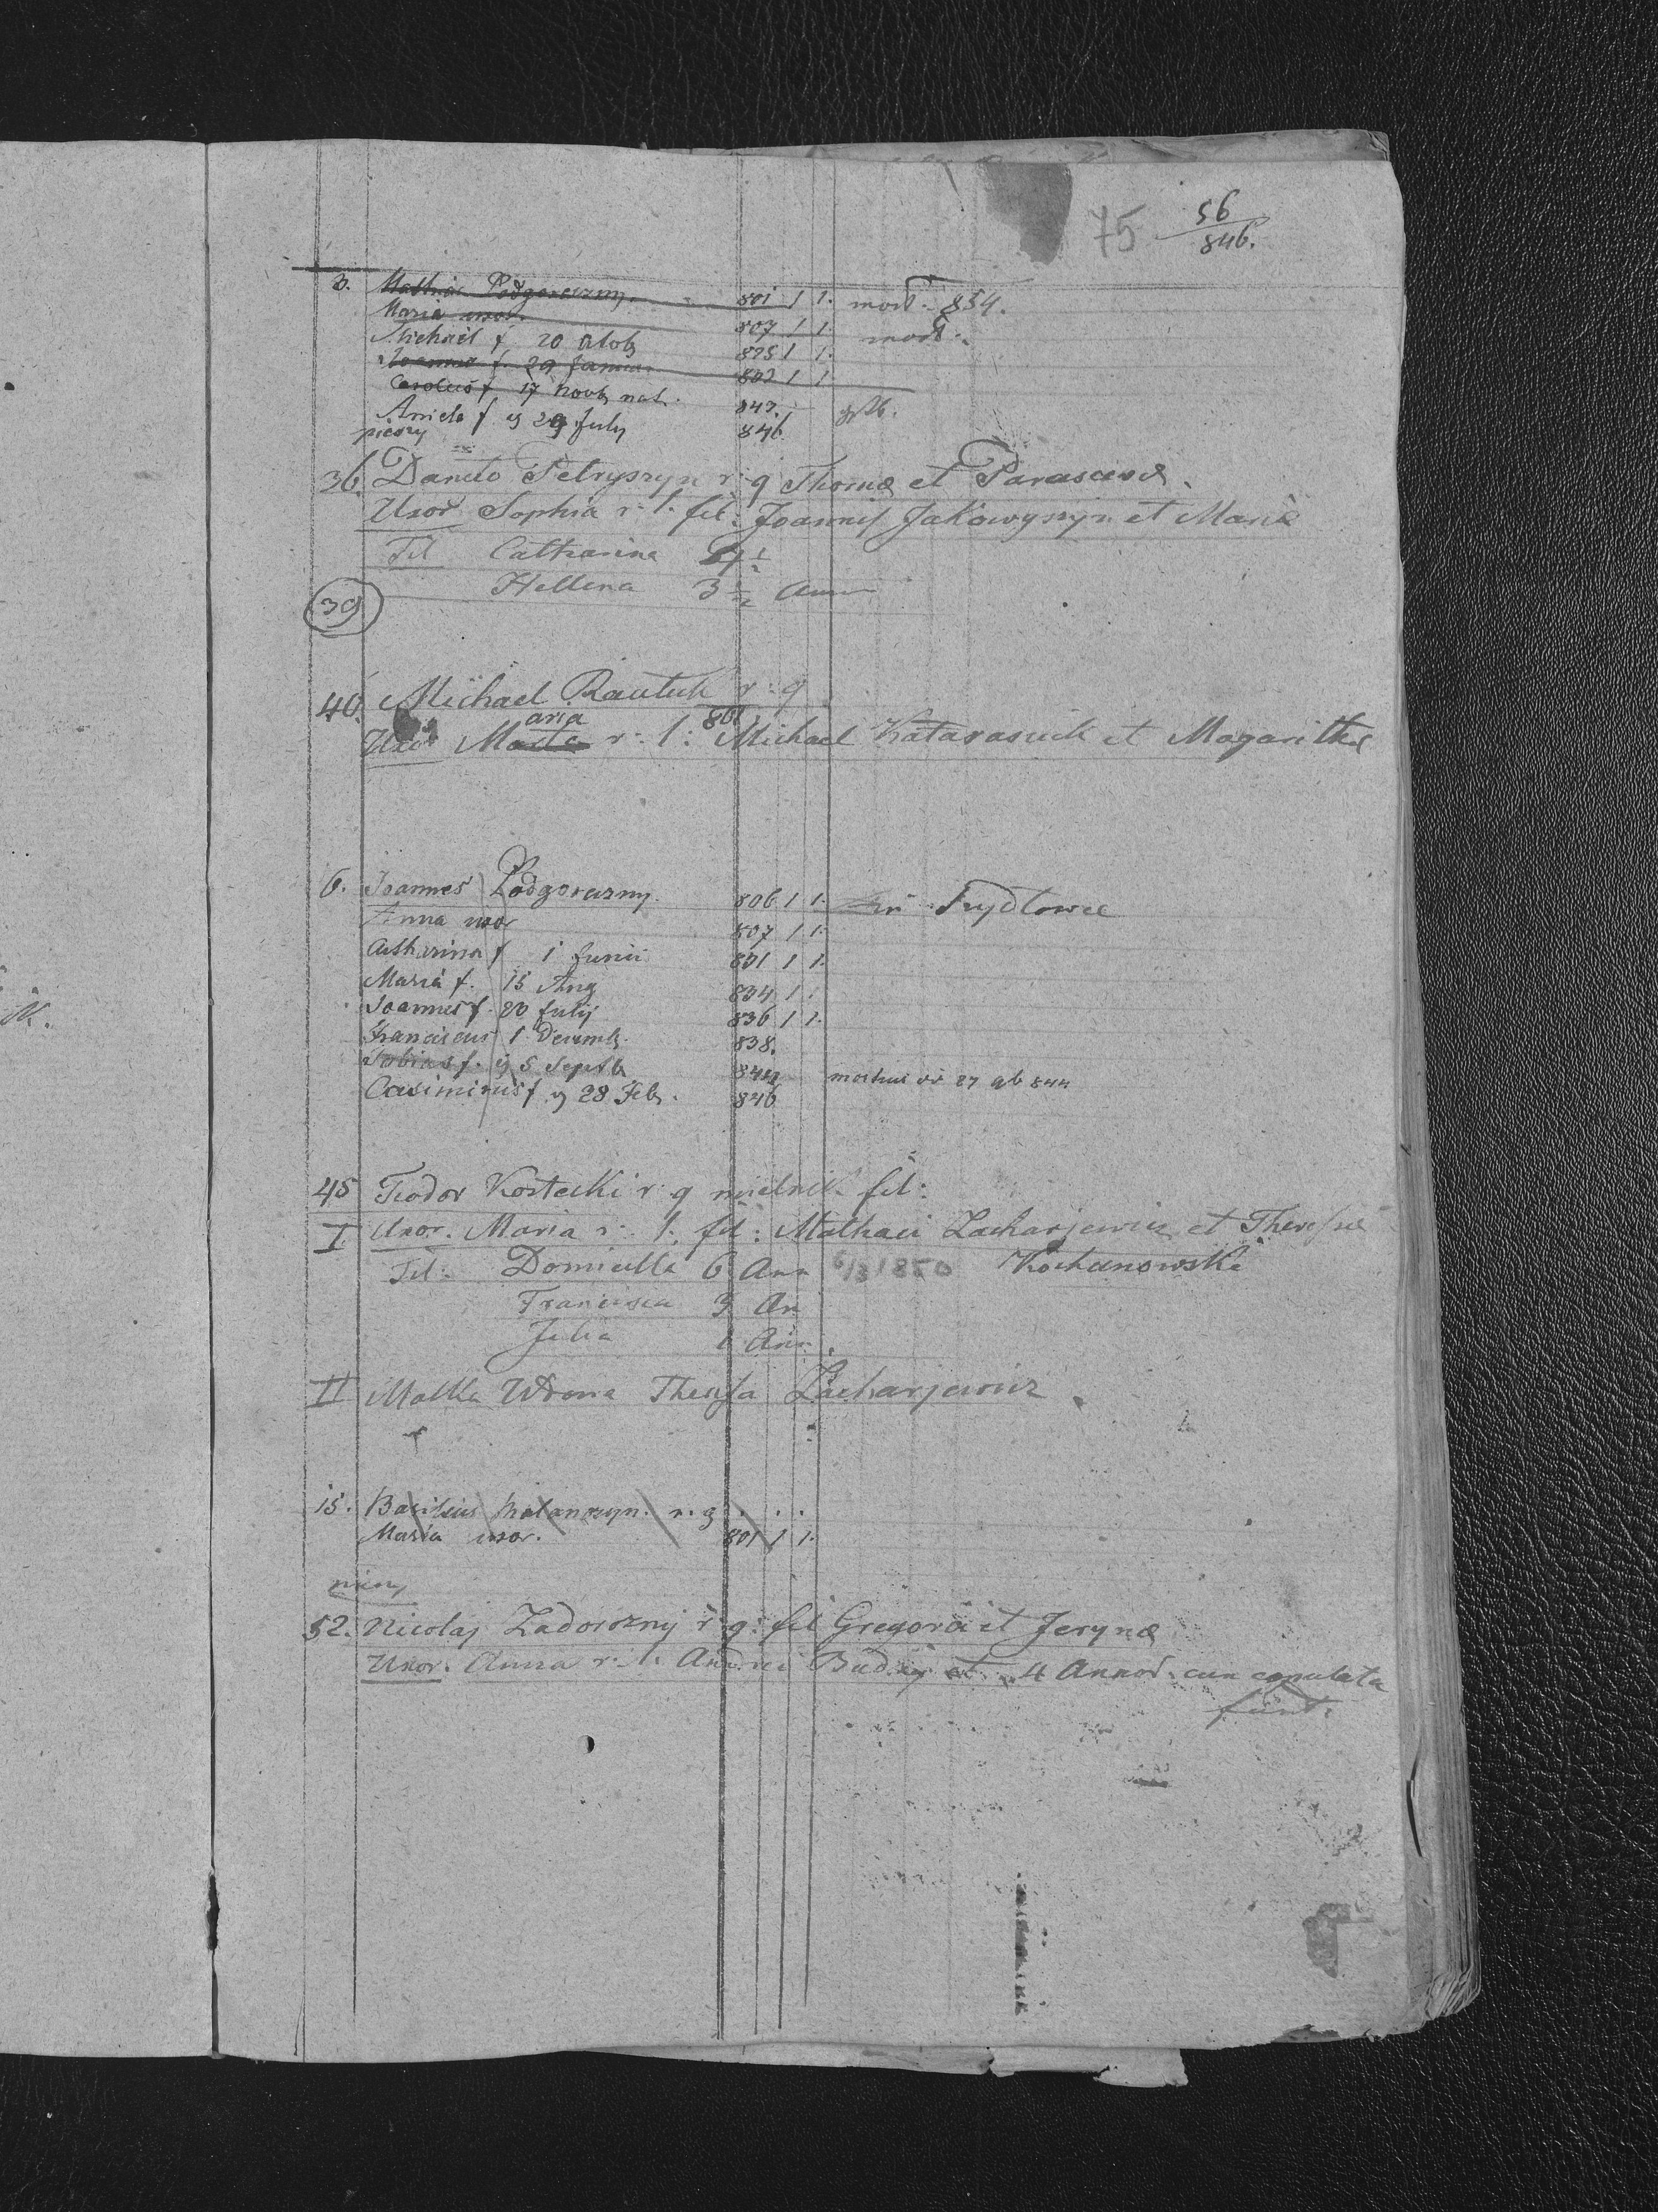 75 56
846.
3. Mathias Podgoreczny. 801 1 1. mort. 854.
Maria uxor. 807 1 1. mort.
Michael f 20 8tob 825 1 1.
Joannes f. 29 Januar 802 1 1
Carolus f 17 Novb nat. 842.
Aniela f. 9 29 July 846
36. Danilo Petryszyn r: g Thomæ et Parascevæ.
Uxor Sophia r: l: fil: Joannis Jakowyszyn et Mariæ
Fil Catharina
Hellena 3 1/2 Ann
39
40. Michael Rautuk r: g
aria 801
Uxor Marta r: l: Michael Katarasuik et Magarithæ
6. Joannes Podgoreczny. 806 1 1. in Trydlowce
Anna uxor 807 1 1.
Catharina f 1 Junii 831 1 1.
Maria f. 15 Aug 834 1 1
Joannes f. 20 July 836 1 1.
Franciscus 1 Decemb. 838.
Tobias f. 9 5 Septb 844 mortuus 27 9b 844
Casimirus f 9 28 Feb. 846
45 Teodor Kostecki r: g mielnik fil:
I Uxor. Maria r: l: fil: Mathaei Zacharjewicz et Theresiæ
Fil: Domicella 6 Ann 6/3 1850 Kochanowski
Francisca 3 An
Julia 1 Ann.
II Matka Wdowa Theresa Zacharjewicz.
15. Basilius Malanczyn. r. g . . .
Maria uxor. 801 1 1.
52. Nicolaj Zadorozny r: g: fil Gregorii et Jerynæ
Uxor. Anna r: l: Andrei Budny et 4 Annos cum copulata
sunt.